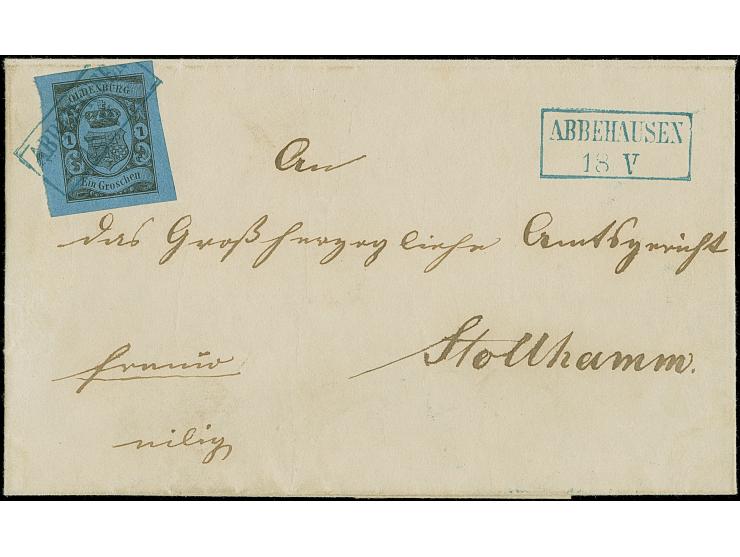 OLDENBURG
1 1
Ein Groschen
ABBEHAUSEN
18 V
An
das Großherzogliche Amtsgericht
Stollhamm.
franco
eilig